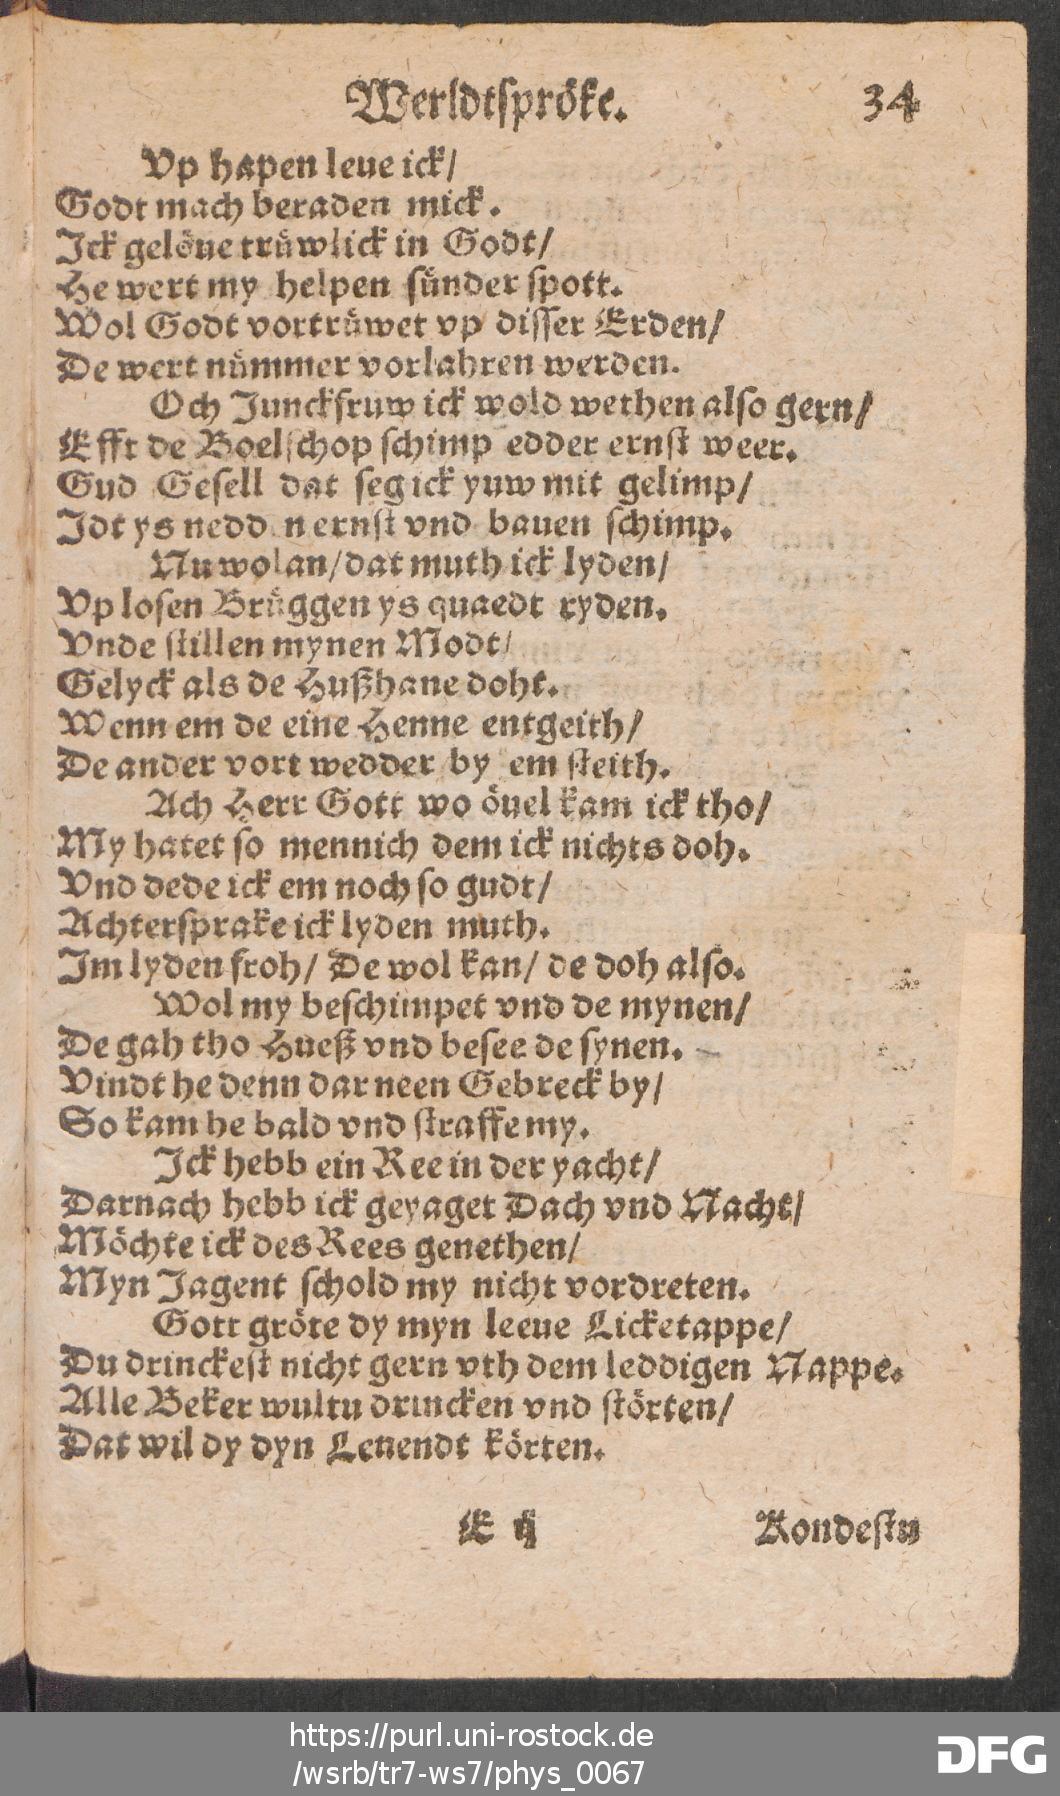 Werldtspröke. 34
Vp hapen leue ick/
Godt mach beraden mick.
Ick gelöue trüwlick in Godt/
He wert my helpen sünder spott.
Wol Godt vortrüwet vp disser Erden/
De wert nümmer vorlahren werden.
Och Junckfruw ick wold wethen also gern/
Efft de Boelschop schimp edder ernst weer.
Gud Gesell dat seg ick yuw mit gelimp/
Idt ys nedd n ernst vnd bauen schimp.
Nu wolan/ dat muth ick lyden/
Vp losen Brüggen ys quaedt ryden.
Vnde stillen mynen Modt/
Gelyck als de Hußhane doht.
Wenn em de eine Henne entgeith/
De ander vort wedder by em steith.
Ach Herr Gott wo öuel kam ick tho/
My hatet so mennich dem ick nichts doh.
Vnd dede ick em noch so gudt/
Achtersprake ick lyden muth.
Im lyden froh/ De wol kan/ de doh also.
Wol my beschimpet vnd de mynen/
De gah tho Hueß vnd besee de synen.
Vindt he denn dar neen Gebreck by/
So kam he bald vnd straffe my.
Ick hebb ein Ree in der yacht/
Darnach hebb ick geyaget Dach vnd Nacht/
Möchte ick des Rees genethen/
Myn Jagent schold my nicht vordreten.
Gott gröte dy myn leeue Licketappe/
Du drinckest nicht gern vth dem leddigen Nappe.
Alle Beker wultu drincken vnd störten/
Dat wil dy dyn Leuendt körten.
E ij Kondestu
https://purl.uni-rostock.de
/wsrb/tr7-ws7/phys_0067
DFG